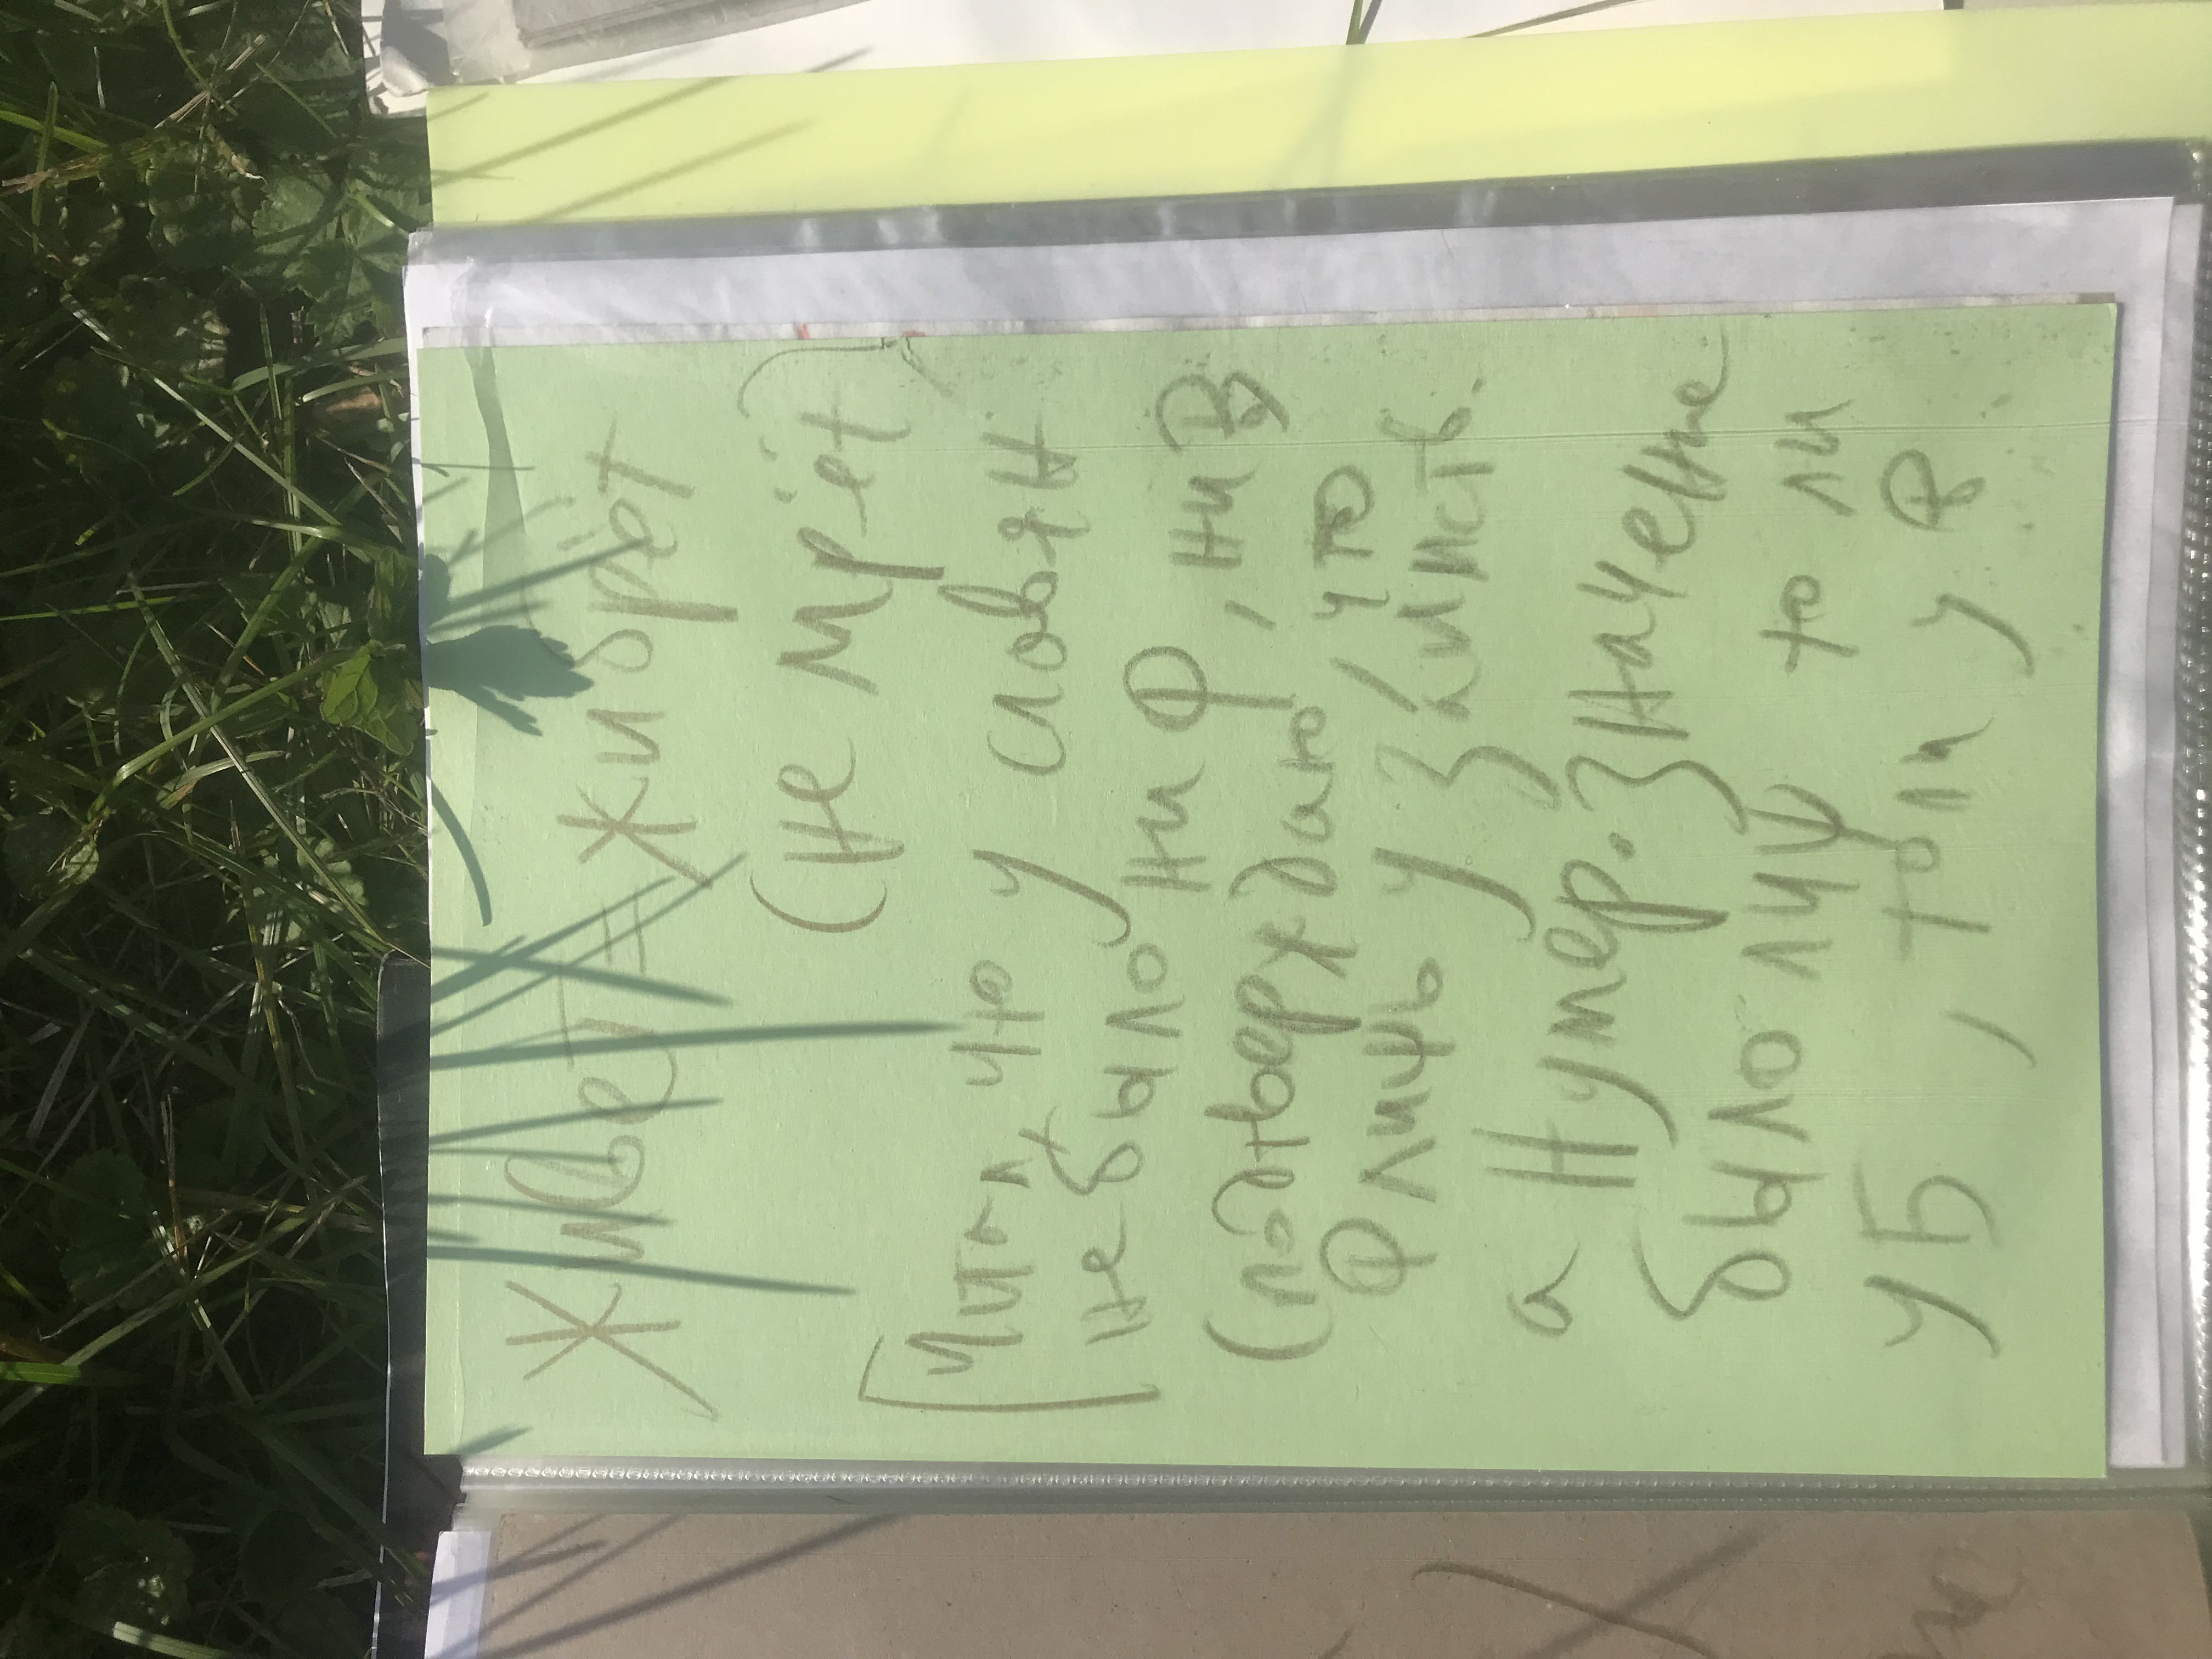 живет = жибрёт
(не мрёт)
Читал, что у словян
не было ни Ф, ни В
(подтверждаю, что
Ф лишь у заимств.
а Нумер. значение
было лиш то ли
у Б, то ли у В